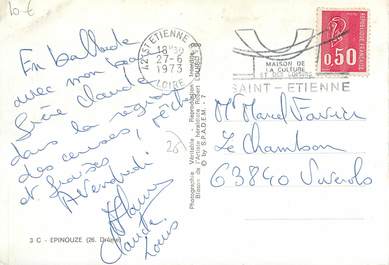 10 €
En ballade
avec mon beau
frère Claude
dans la région
des cerises, pêches
et fraises
A Vendredi
Claude
Louis
3 C - EPINOUZE (26. Drôme)
Photographie Véritable - Reproduction Interdite
Blason de l'Artiste héraldiste Robert LOUIS
© by S.P.A.D.E.M.
42 ST ETIENNE
18H30
27-6
1973
LOIRE
MAISON DE
LA CULTURE
ET DES LOISIRS
SAINT-ETIENNE
0,50
Mr Marcel Favier
Le Chambon
63840 Viverols